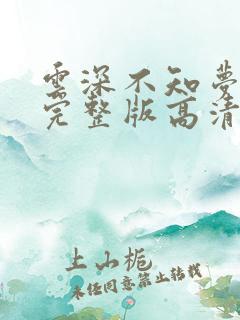 雲深不知夢
完整版高清
上山栀
未经同意禁止转载